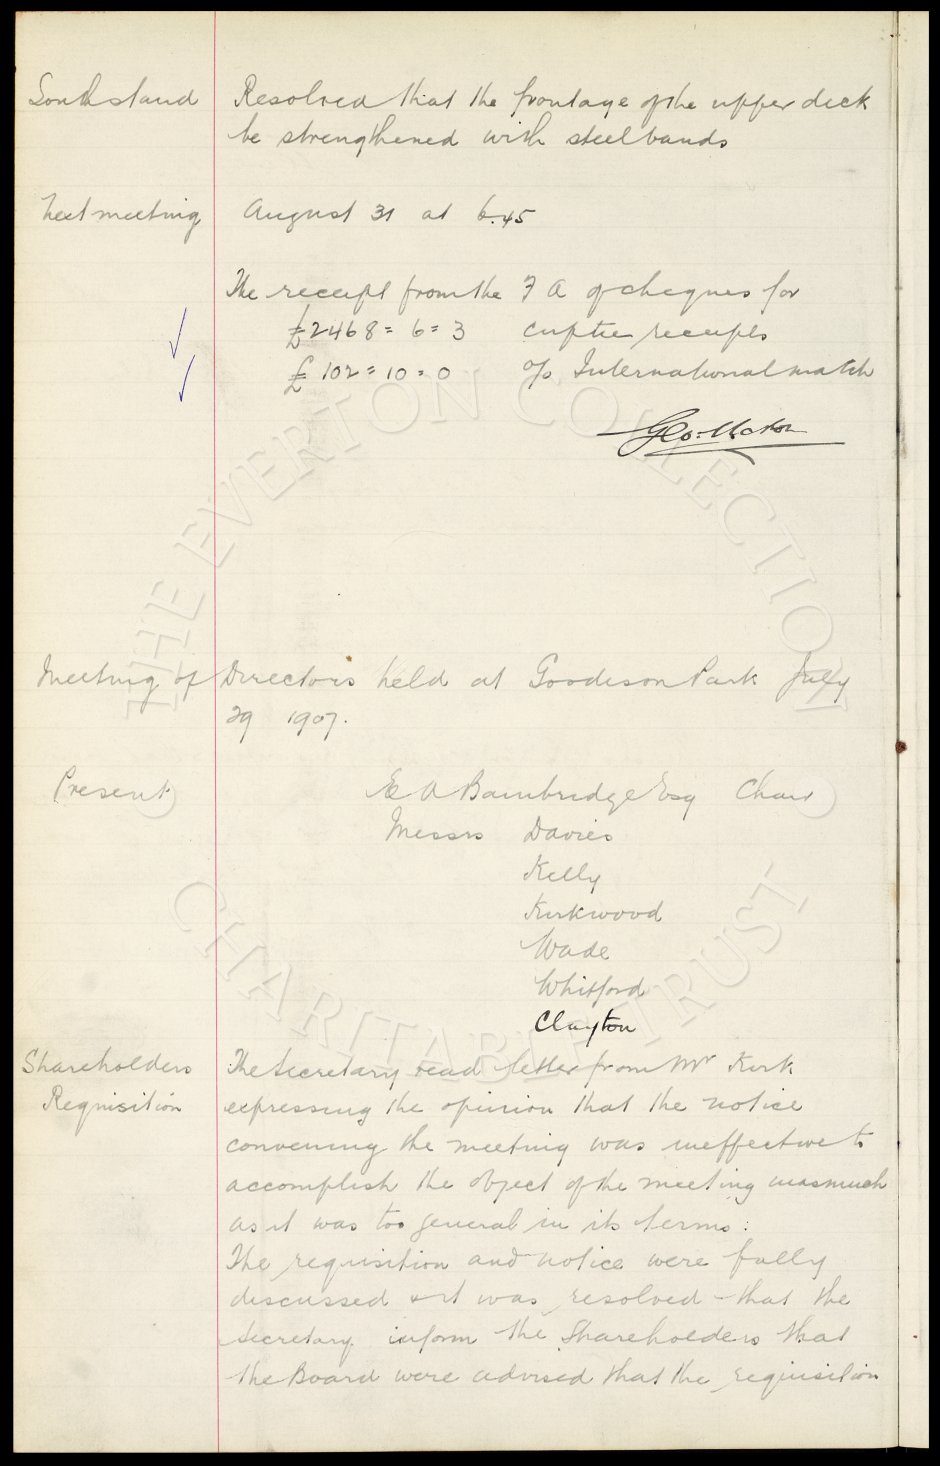 South stand Resolved that the frontage of the upper deck
be strengthened with steel bands
Next meeting August 31 at 6.45
The receipt from the F A of cheques for
£2468 = 6 = 3 cup tie receipts
£ 102 = 10 = 0 o/a International match
Geo: Mahon
THE EVERTON COLLECTION
Meeting of Directors held at Goodison Park July
29 1907.
Present E A Bainbridge Esq Chair
Messrs Davies
Kelly
Kirkwood
Wade
Whitford
Clayton
CHARITABLE TRUST
Shareholders The Secretary read letter from Mr Kirk
Requisition expressing the opinion that the notice
convening the meeting was ineffective to
accomplish the object of the meeting inasmuch
as it was too general in its terms:
The requisition and notice were fully
discussed & it was resolved - that the
Secretary inform the Shareholders that
the Board were advised that the requisition